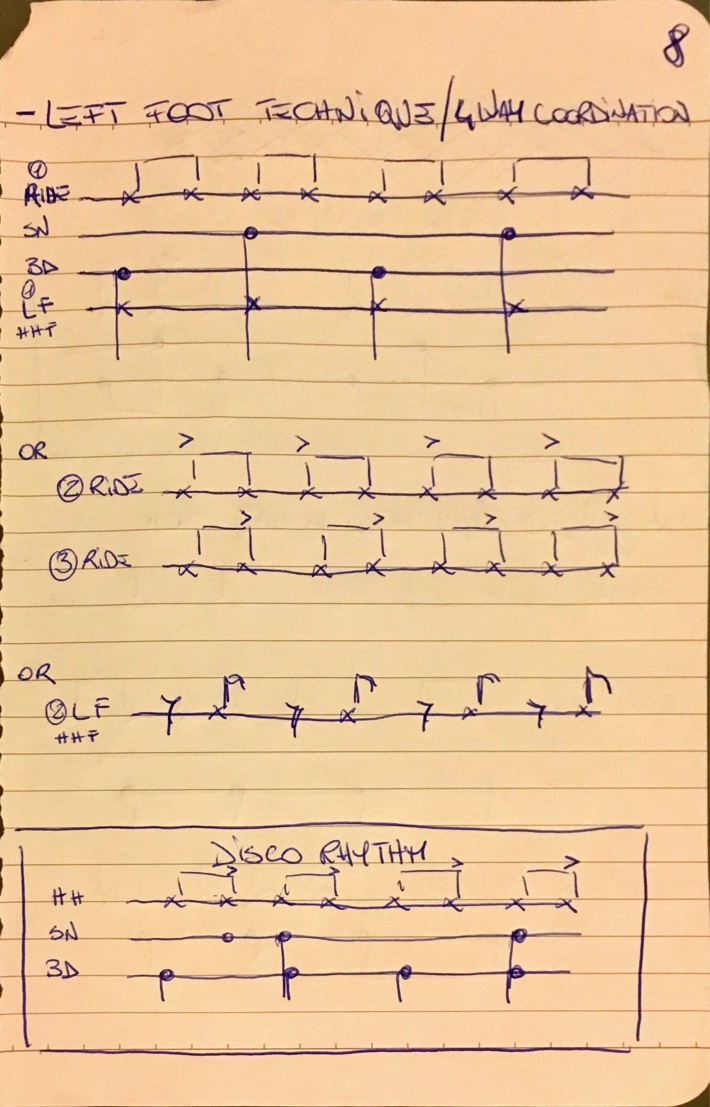 8
- LEFT FOOT TECHNIQUE/4 WAY COORDINATION
①
RIDE
SN
BD
①
LF
HHF
OR
② RIDE
③ RIDE
OR
② LF
HHF
DISCO RHYTHM
HH
SN
BD